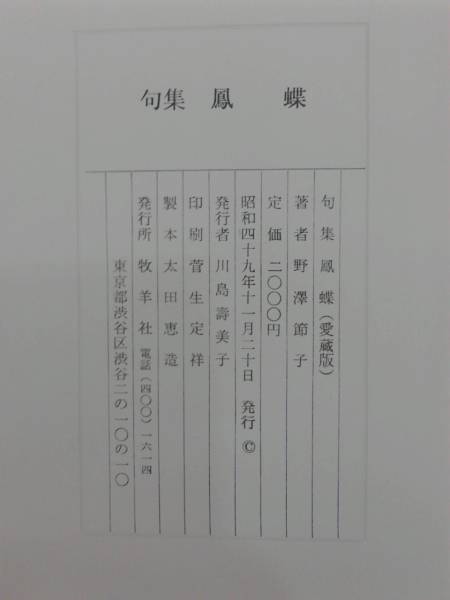 句集 鳳蝶
句集 鳳蝶(愛蔵版)
著者 野澤節子
定価 二〇〇〇円
昭和四十九年十一月二十日 発行 ©
発行者 川島壽美子
印刷 菅生定祥
製本 太田恵造
発行所 牧羊社 電話(四〇〇)一六一四
東京都渋谷区渋谷二の一〇の一〇